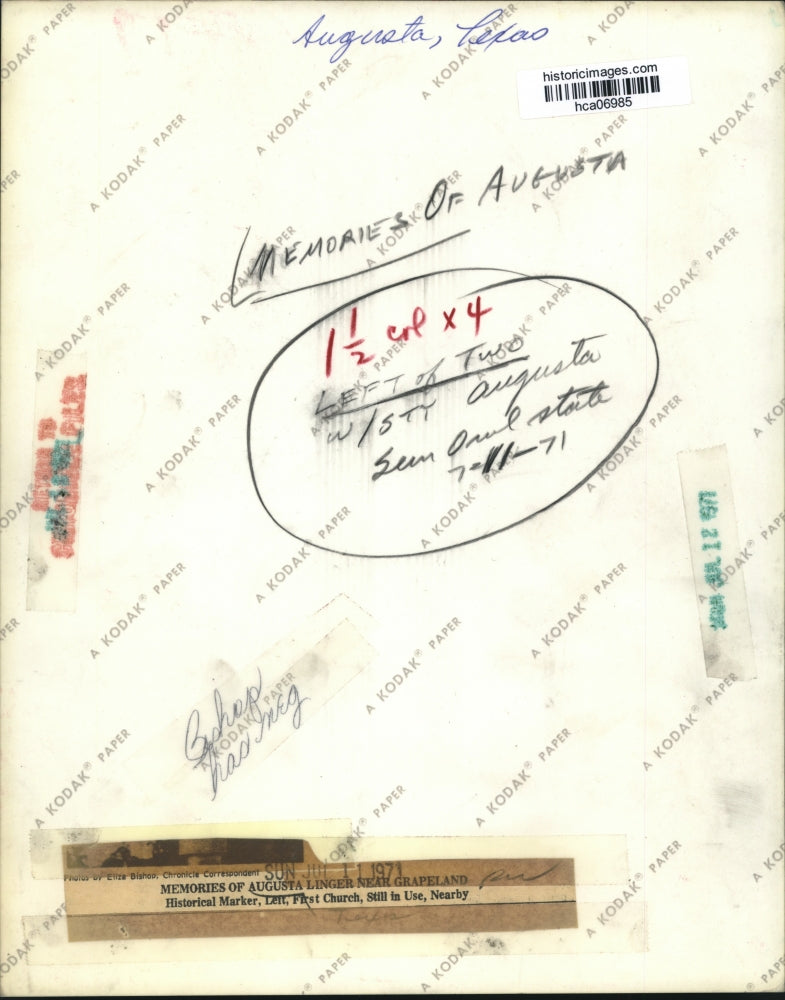 Augusta, Texas
historicimages.com
hca06985
MEMORIES OF AUGUSTA
1 1/2 col x 4
LEFT of TWO
w/STY Augusta
Sun Out state
7-11-71
Bishop
has neg
Photos by Eliza Bishop, Chronicle Correspondent
SUN JUL 11 1971
MEMORIES OF AUGUSTA LINGER NEAR GRAPELAND
Historical Marker, Left, First Church, Still in Use, Nearby
A KODAK® PAPER